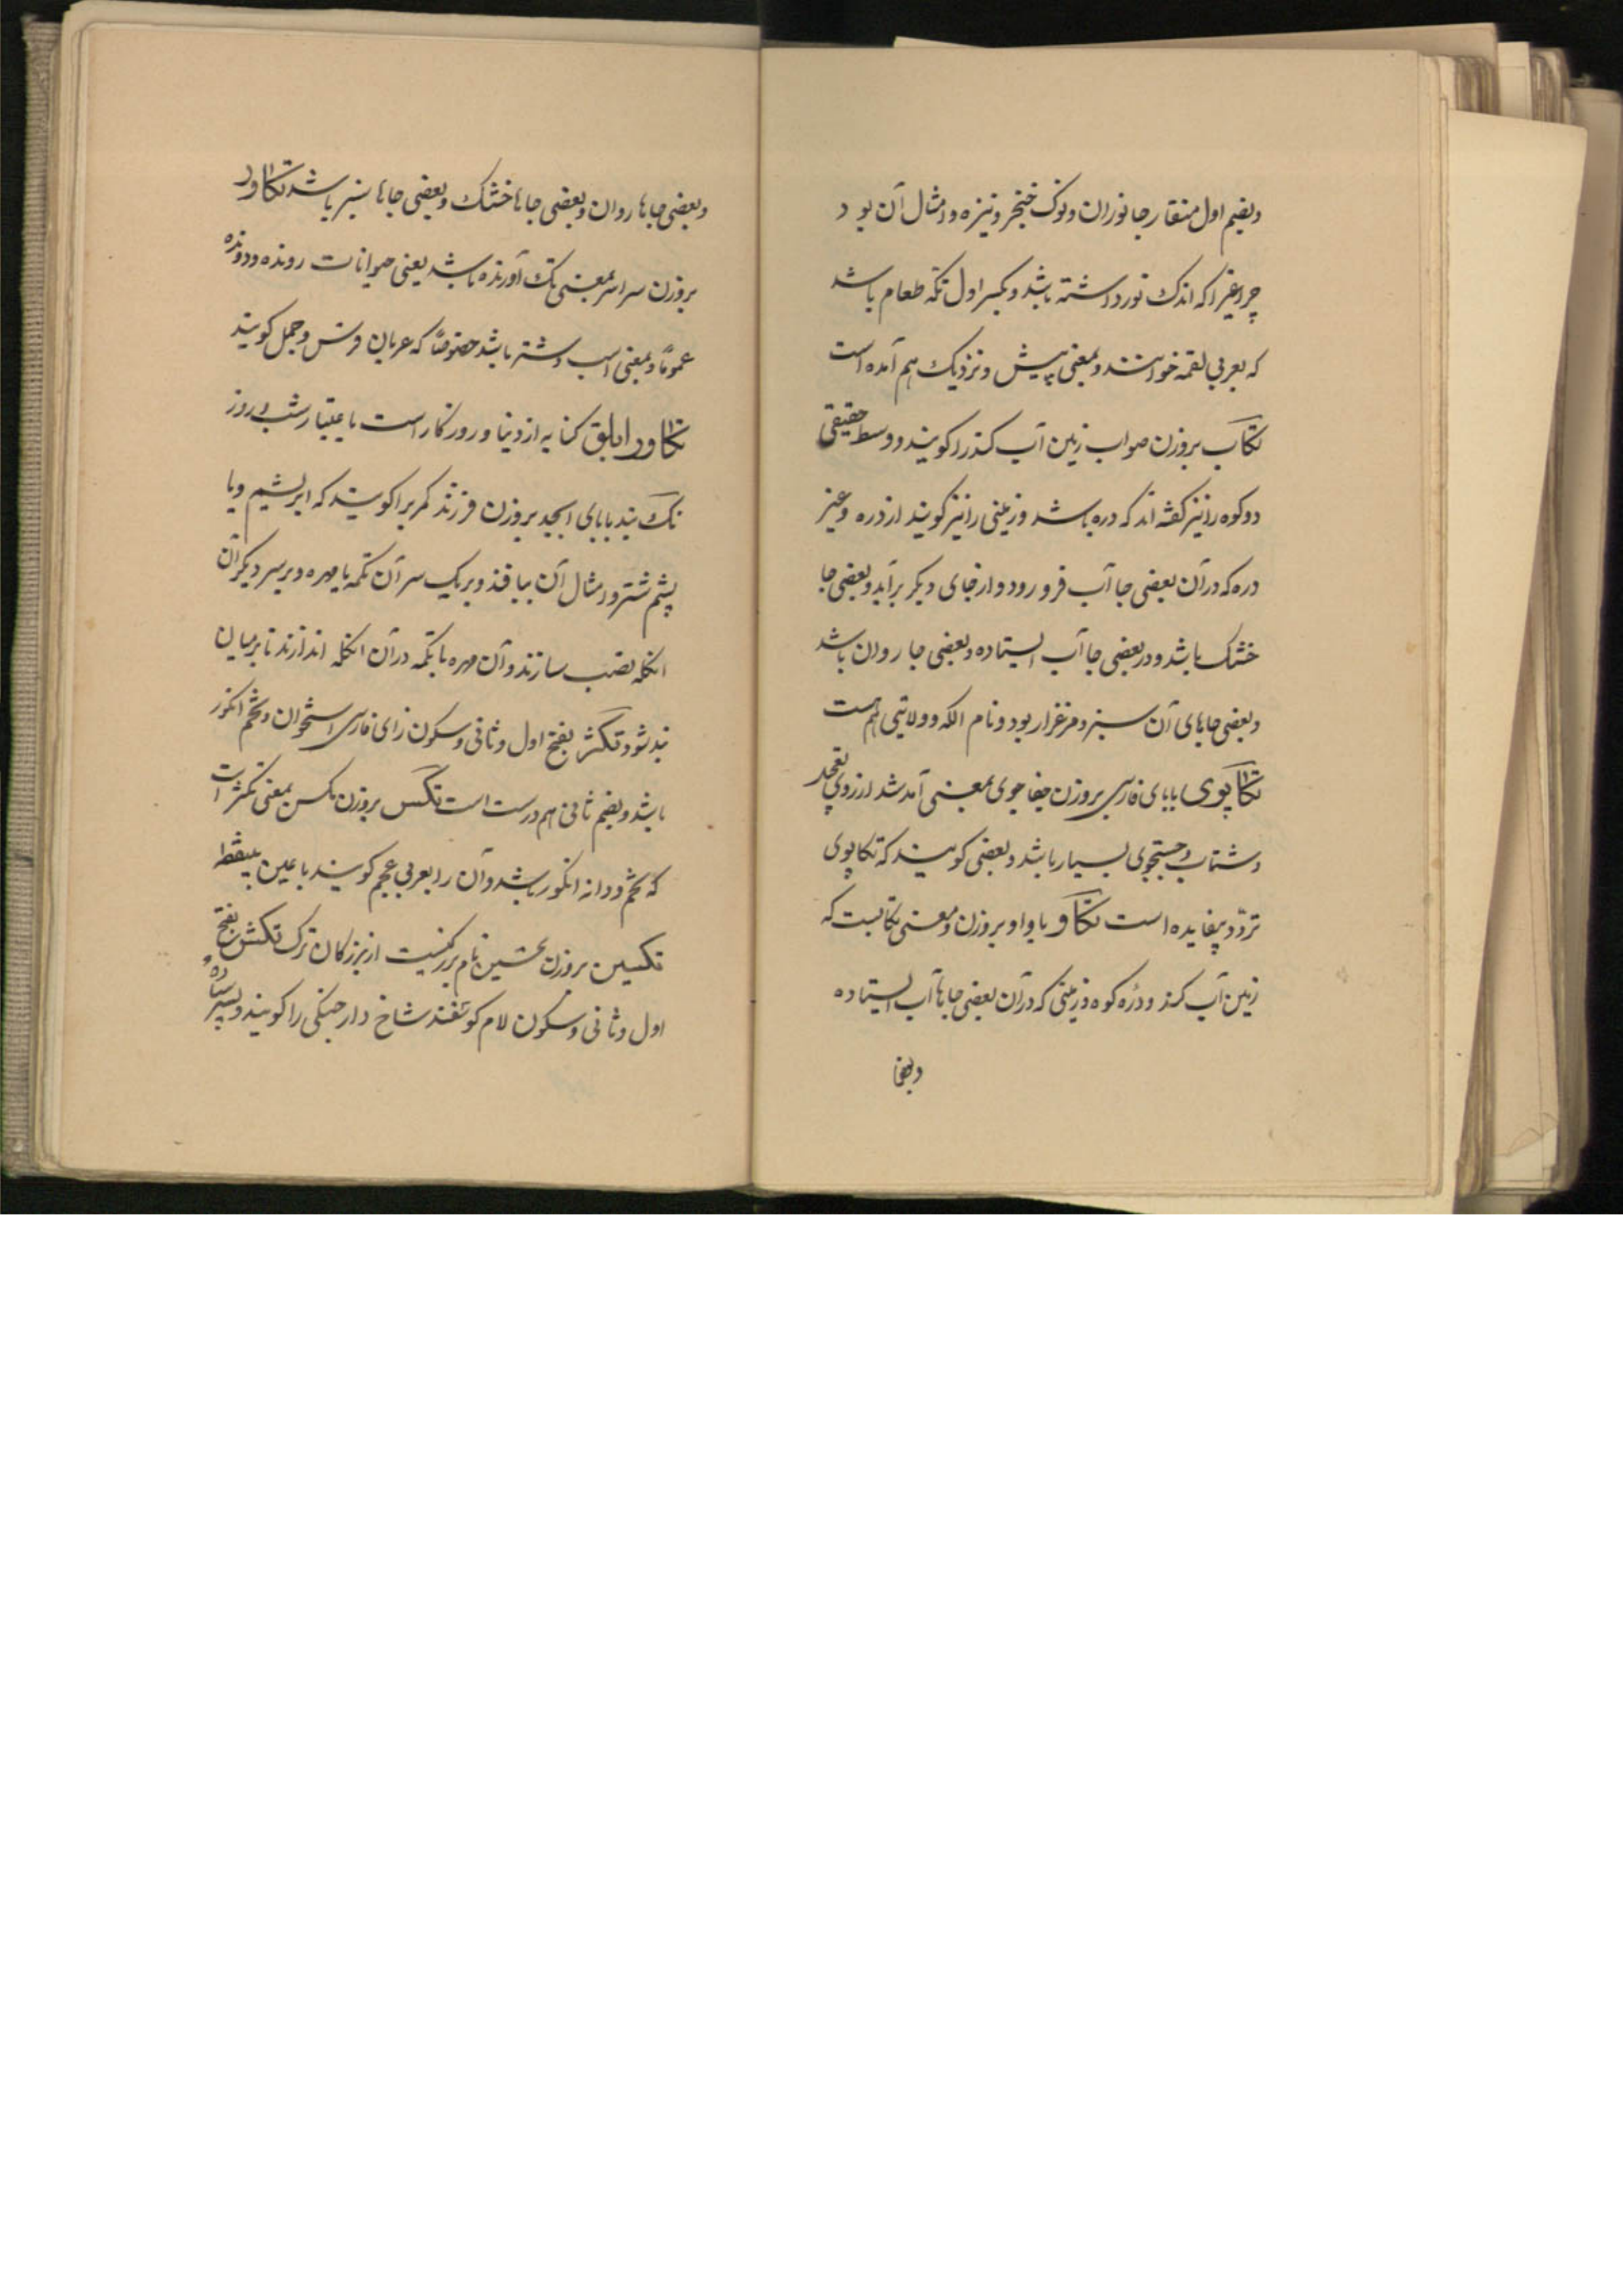 وبضم اول منقار جانوران ونوک خنجر ونیزه وامثال آن بود
چراغیرا که اندک نور داشته باشد وبکسر اول تکه طعام باشد
که بعربی لقمه خوانند وبمعنی پیش ونزدیک هم آمده است
تکاب بروزن صواب زمین آب کند را کویند ووسط حقیقی
دوکوه را نیز کفته اند که دره باشد وزمینی را نیز کویند از دره وغیر
دره که در آن بعضی جا آب فرو رود واز جای دیکر برآید وبعضی جا
خشک باشد ودر بعضی جا آب ایستاده وبعضی جا روان باشد
وبعضی جاهای آن سبز ومرغزار بود ونام الکه وولایتی هم هست
تکاپوی با بای فارسی بروزن جفاجوی بمعنی آمد شد از روی تعجیل
وشتاب وجستجوی بسیار باشد وبعضی کویند که تکاپوی
تردّد بیفایده است تکاو با واو بروزن ومعنی تکابست که
زمین آب کند ودرّه کوه وزمینی که در آن بعضی جاها آب ایستاده
وبعضی جا
وبعضی جاها روان وبعضی جاها خشک وبعضی جاها سبز باشد تکاور
بروزن سراسر بمعنی تک آورنده باشد یعنی حیوانات رونده ودونده
عموماً وبمعنی اسب وشتر باشد خصوصاً که عربان فرس وجمل کویند
تکاور ابلق کنایه از دنیا وروزکار است باعتبار شب وروز
تک بند با بای ابجد بروزن فرزند کمربرا کویند که ابریشم ویا
پشم شتر وامثال آن ببافند وبر یک سر آن تکمه یا مهره وبر سر دیکر آن
انکله نصب سازند وآن مهره یا تکمه در آن انکله اندازند تا بر میان
بند شود تکژ بفتح اول وثانی وسکون زای فارسی استخوان وتخم انکور
باشد وبضم ثانی هم درست است تکس بروزن مکس بمعنی تکژ است
که تخم ودانه انکور باشد وآن را بعربی عجم کویند با عین بینقطه
تکسین بروزن تحسین نام بزرکیست از بزرکان ترک تکش بفتح
اول وثانی وسکون لام کوسفند شاخ دار جنکی را کویند وپسر ساده